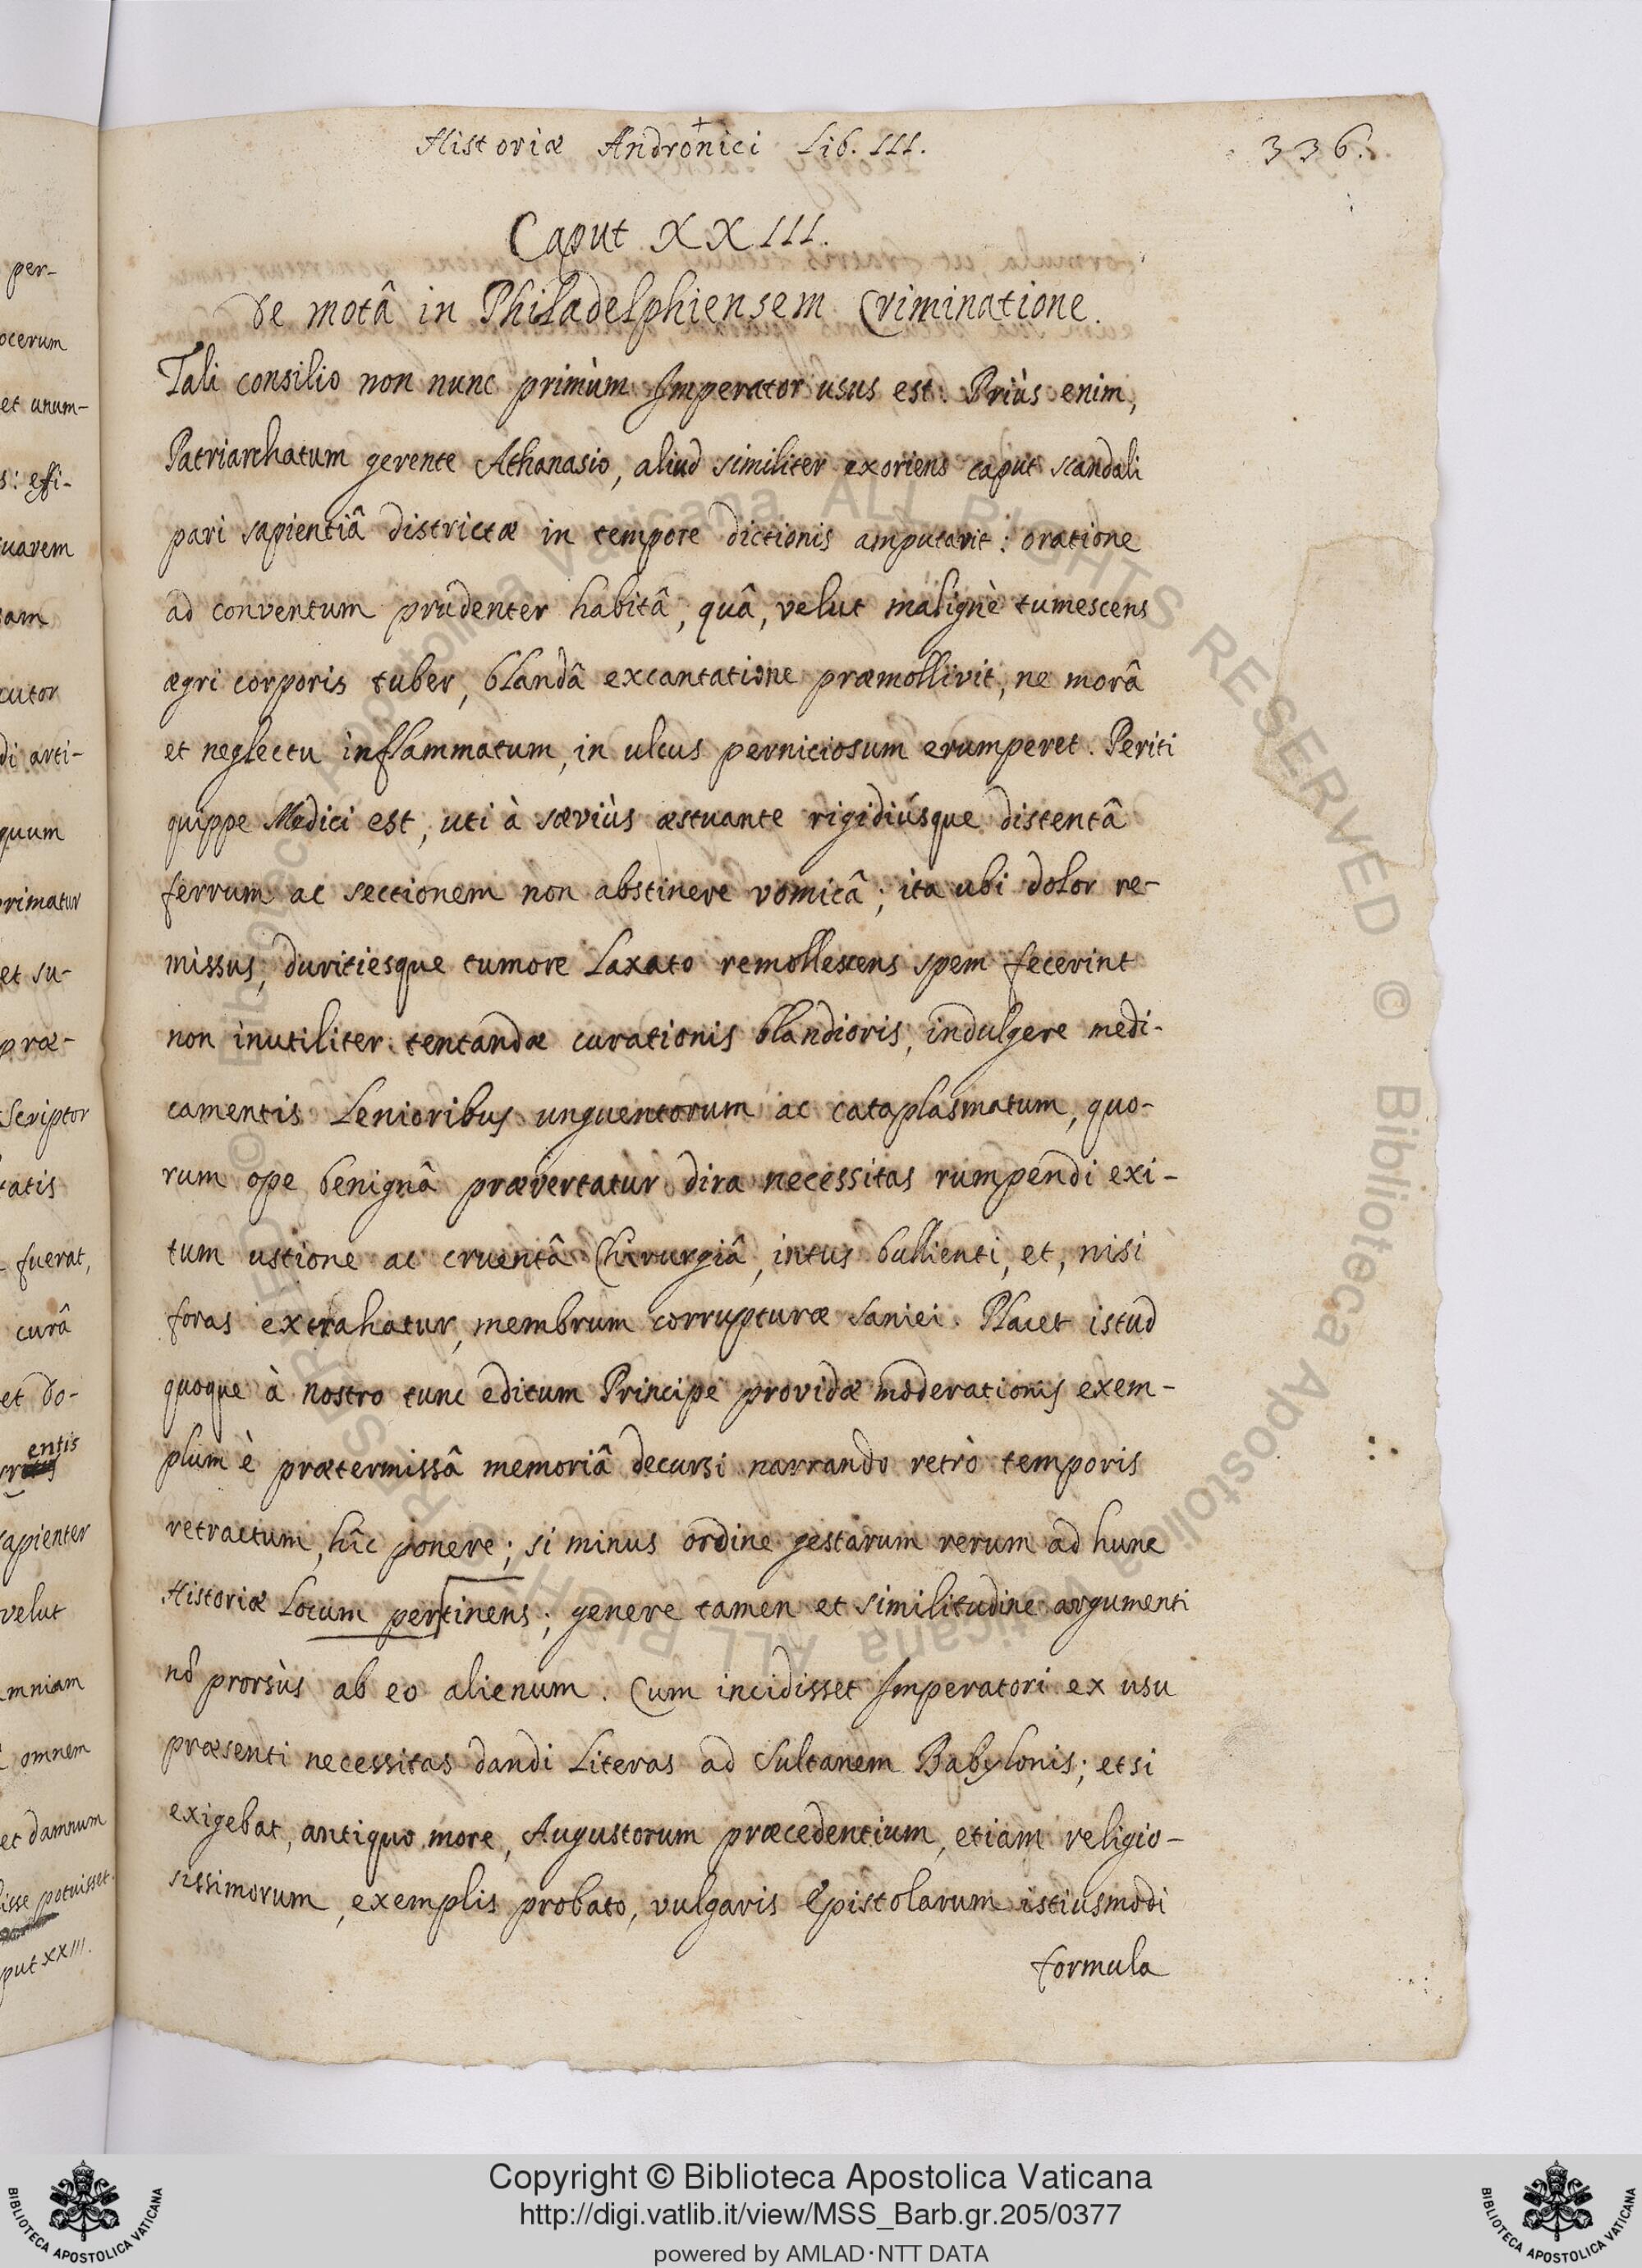 Historiæ Andronici Lib. III.
336.
Caput XXIII.
De motâ in Philadelphiensem Criminatione.
Tali consilio non nunc primùm Imperator usus est. Priùs enim,
Patriarchatum gerente Athanasio, aliud similiter exoriens caput scandali
pari sapientiâ districtæ in tempore dictionis amputavit: oratione
ad conventum prudenter habitâ, quâ, velut malignè tumescens
ægri corporis tuber, blandâ excantatione præmollivit, ne morâ
et neglectu inflammatum, in ulcus perniciosum erumperet. Periti
quippe Medici est, uti à sæviùs æstuante rigidiúsque distentâ
ferrum ac sectionem non abstinere vomicâ; ita ubi dolor re-
missus, duritiesque tumore laxato remollescens spem fecerint
non inutiliter tentandæ curationis blandioris, indulgere medi-
camentis lenioribus unguentorum ac cataplasmatum, quo-
rum ope benignâ prævertatur dira necessitas rumpendi exi-
tum ustione ac cruentâ Chirurgiâ, intus bullienti, et, nisi
foras extrahatur, membrum corrupturæ saniei. Placet istud
quoque à nostro tunc editum Principe providæ moderationis exem-
plum è prætermissâ memoriâ decursi narrando retrò temporis
retractum, hîc ponere; si minus ordine gestarum rerum ad hunc
Historiæ Locum pertinens; genere tamen et similitudine argumenti
nõ prorsùs ab eo alienum. Cum incidisset Imperatori ex usu
præsenti necessitas dandi Literas ad Sultanem Babylonis; etsi
exigebat, antiquo more, Augustorum præcedentium, etiam religio-
sissimorum, exemplis probato, vulgaris Epistolarum istiusmodi
formula
per-
ocerum
et unum-
s: effi-
uarem
sam
cutor
di arti-
quum
primatur
et su-
præ-
Scriptor
tatis
fuerat,
curâ
et do-
entis
sapienter
velut
mniam
omnem
et damnum
isse potuisset.
put XXIII.
© Biblioteca Apostolica Vaticana ALL RIGHTS RESERVED © Biblioteca Apostolica Vaticana ALL RIGHTS RESERVED
Copyright © Biblioteca Apostolica Vaticana
http://digi.vatlib.it/view/MSS_Barb.gr.205/0377
powered by AMLAD·NTT DATA
BIBLIOTECA APOSTOLICA VATICANA
BIBLIOTECA APOSTOLICA VATICANA